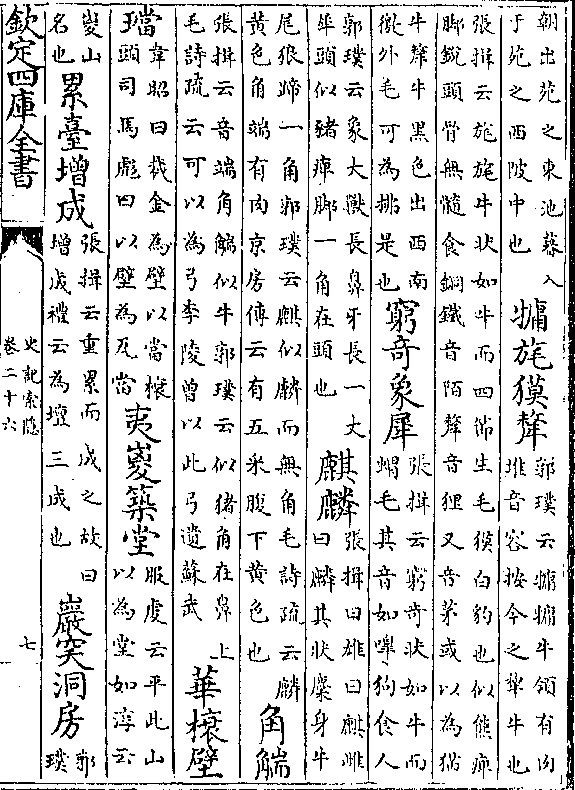 朝出苑之東池暮入
于苑之西陂中也
𤛑旄獏犛
郭璞云𤛑𤛑牛領有肉
堆音容按今之犎牛也
張揖云旄旄牛狀如牛而四節生毛獏白豹也似熊庳
脚銳頭骨無髓食銅鐵音陌犛音狸又音茅或以為猫
牛犛牛黑色出西南
徼外毛可為拂是也
窮竒象犀
張揖云窮竒狀如牛而
蝟毛其音如嘷狗食人
郭璞云象大獸長鼻牙長一丈
犀頭似豬庳脚一角在頭也
麒麟
張揖曰雄曰麒雌
曰麟其狀麋身牛
尾狼蹄一角郭璞云麒似麟而無角毛詩疏云麟
黄色角端有肉京房傳云有五采腹下黄色也
角䚎
張揖云音端角䚎似牛郭璞云似猪角在鼻上
毛詩疏云可以為弓李陵曾以此弓遺蘇武
華榱璧
璫
韋昭曰裁金為璧以當榱
頭司馬彪曰以璧為瓦當
夷嵏築堂
服虔云平此山
以為堂如淳云
嵏山
名也
累臺增成
張揖云重累而成之故曰
增成禮云為壇三成也
巖突洞房
郭
璞
欽定四庫全書
史記索隱
卷二十六
七